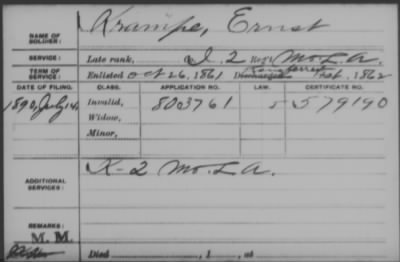 Krampe, Ernst
NAME OF SOLDIER:
SERVICE: Late rank, I. 2 Reg't Mo. L. A.
TERM OF SERVICE: Enlisted Oct 26, 1861 Discharged Transferred Feb., 1862
DATE OF FILING. CLASS. APPLICATION NO. LAW. CERTIFICATE NO.
1890, July 14, Invalid, 803761 579190
Widow,
Minor,
ADDITIONAL SERVICES: K-2 Mo. L A.
REMARKS:
M. M.
Died , 1 , at